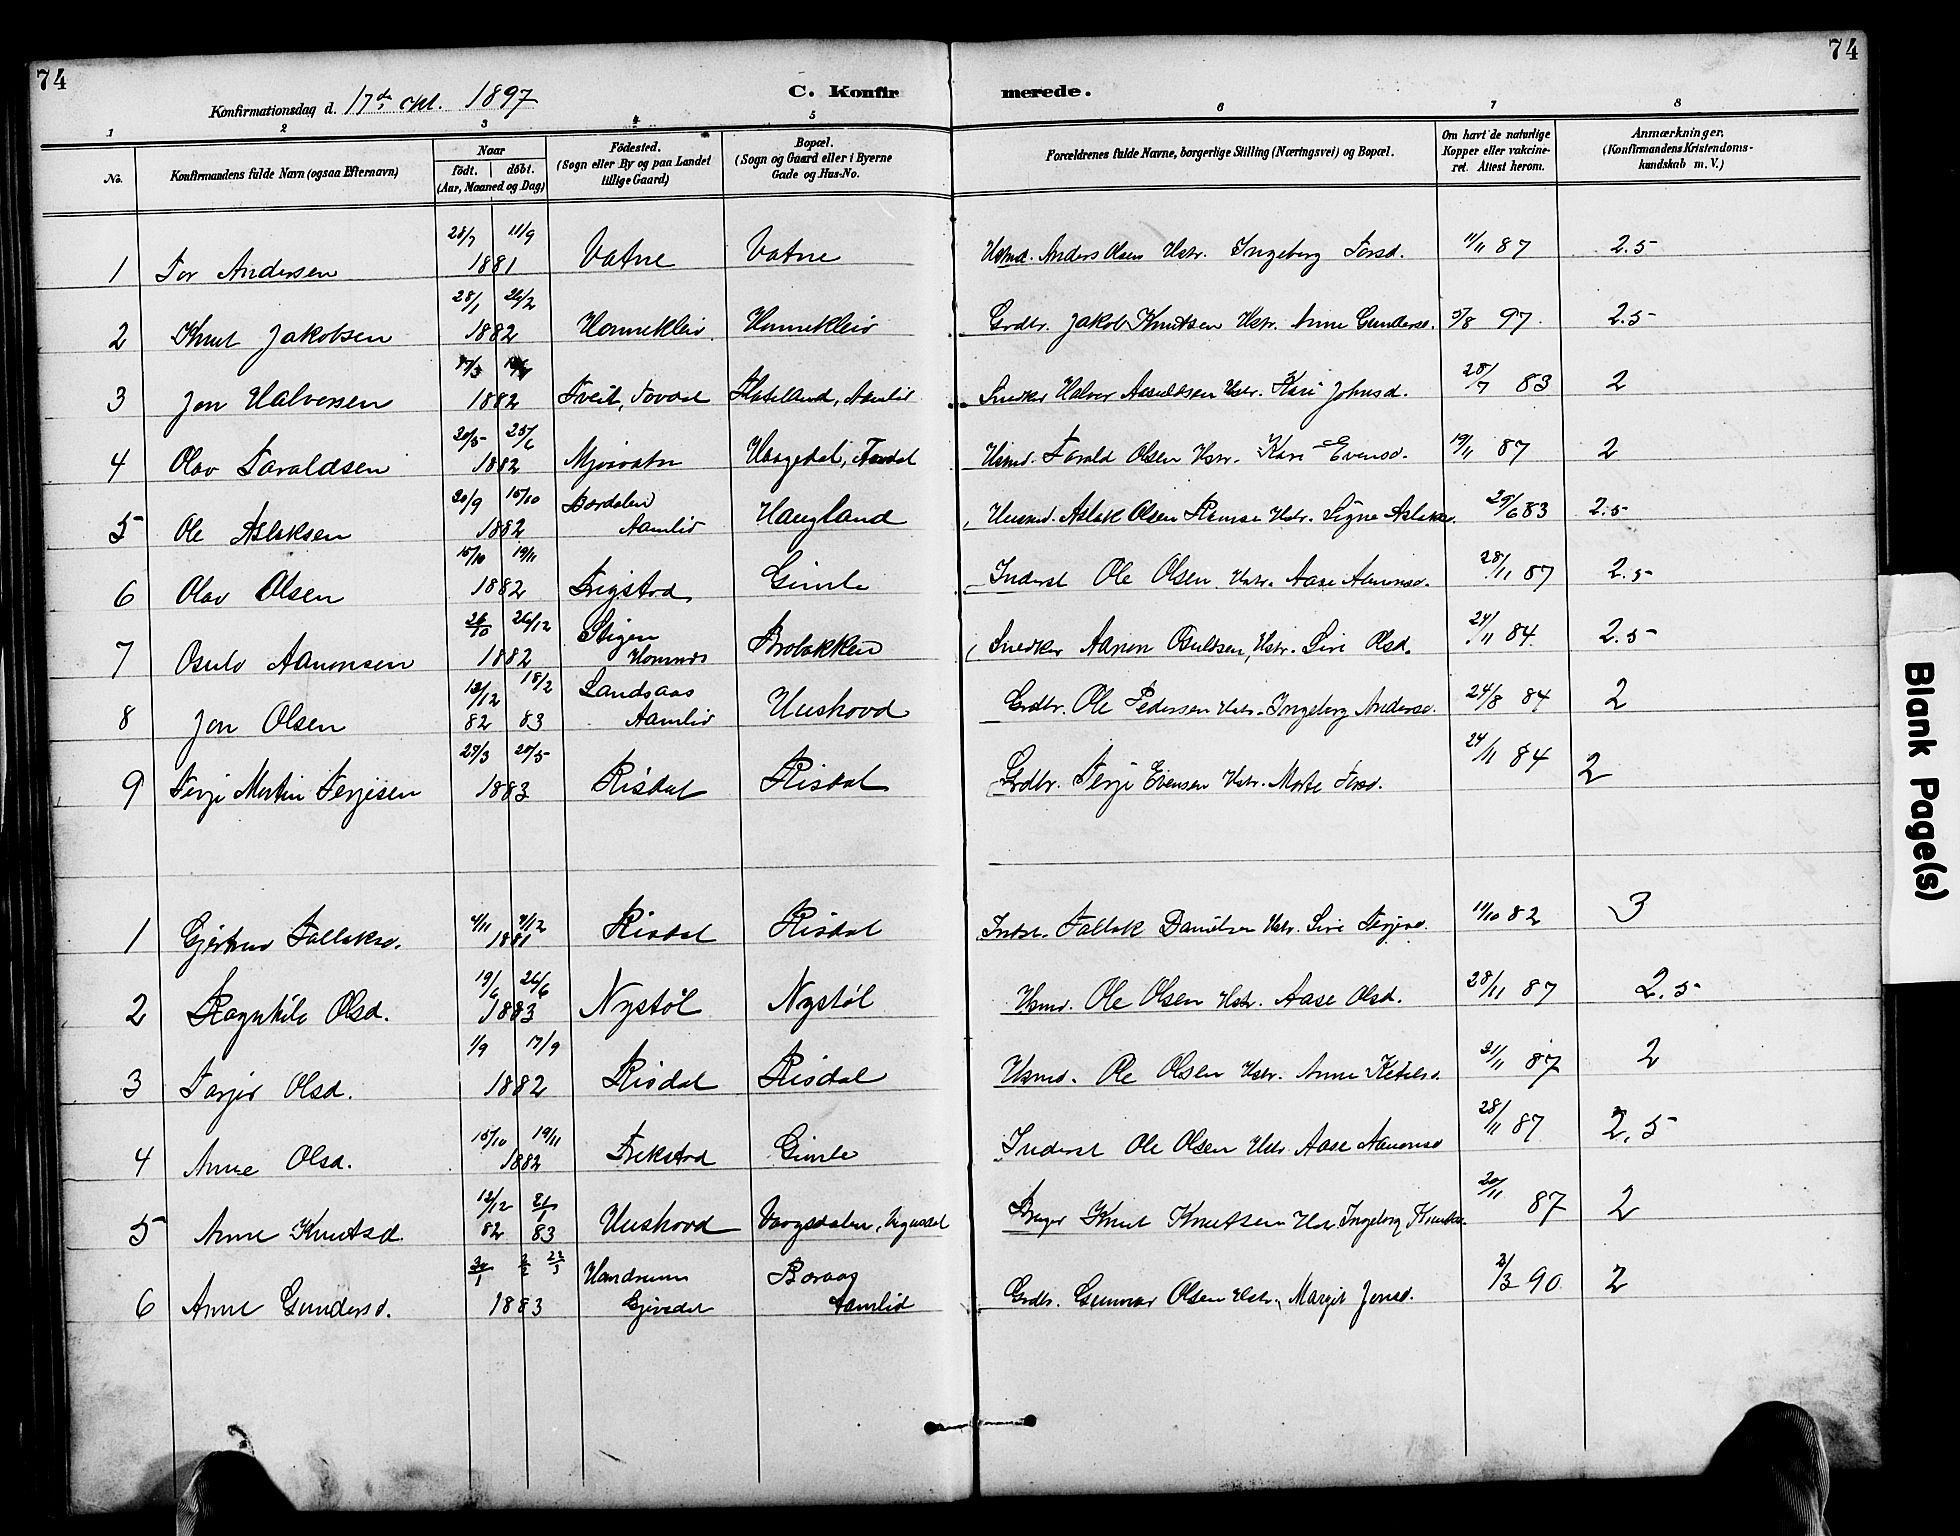 74
74
Konfirmationsdag d. 17de okt. 1897
C. Konfirmerede.
1 2 3 4 5 6 7 8
No.
Konfirmandens fulde Navn (ogsaa Efternavn)
Naar
født. døbt.
(Aar, Maaned og Dag)
Fødested.
(Sogn eller By og paa Landet
tillige Gaard)
Bopæl.
(Sogn og Gaard eller i Byerne
Gade og Hus-No.
Forældrenes fulde Navne, borgerlige Stilling (Næringsvei) og Bopæl.
Om havt de naturlige
Kopper eller vakcine-
ret. Attest herom.
Anmærkninger.
(Konfirmandens Kristendoms-
kundskab m. V.)
1 Tor Andersen 28/7 11/9 1881 Vatne Vatne Usmd. Anders Olsen Hstr. Ingeborg Torsd. 11/11 87 2.5
2 Knut Jakobsen 28/1 26/2 1882 Honnekleiv Honnekleiv Grdbr. Jakob Knutsen Hstr. Anne Gundersd. 5/8 97 2.5
3 Jon Halvorsen 17/3 1882 Tveit, Tovdal Hateland, Aamlid Snedker Halvor Aasuldsen Hstr. Kari Johnsd. 28/7 83 2
4 Olav Taraldsen 20/5 25/6 1882 Mjovatn Haugedal, Tovdal Husmd. Tarald Olsen Hstr. Kari Evensd. 19/11 87 2
5 Ole Aslaksen 20/9 15/10 1882 Bordalen Aamlid Haugland Husmd. Aslak Olsen Ramse Hstr. Signe Aslaksd. 29/6 83 2.5
6 Olav Olsen 15/10 19/11 1882 Trigstad Gimle Inderst Ole Olsen Hstr. Aase Aanonsd. 28/11 87 2.5
7 Osulv Aanonsen 26/10 26/12 1882 Stigen Homnes Brobakken Snedker Aanon Osuldsen, Hstr. Siri Olsd. 24/11 84 2.5
8 Jon Olsen 12/12 82 18/2 83 Landsaas Aamlid Uushovd Grdbr. Ole Pedersen Hstr. Ingeborg Andersd. 24/8 84 2
9 Terje Martin Terjesen 27/3 20/5 1883 Risdal Risdal Grdbr. Terje Evensen Hstr. Marte Torsd. 24/11 84 2
1 Gjertrud Tallaksd. 4/11 4/12 1881 Risdal Risdal Indst. Tallak Danielsen Hstr. Siri Terjesd. 11/10 82 3
2 Ragnhild Olsd. 19/6 26/6 1883 Nystøl Nystøl Usmd. Ole Olsen Hstr. Aase Olsd. 28/11 87 2.5
3 Tarjer Olsd. 1/9 17/9 1882 Risdal Risdal Usmd. Ole Olsen Hstr. Anne Ketilsd. 21/11 87 2
4 Anne Olsd. 15/10 19/11 1882 Trekstad Gimle Inderst Ole Olsen Hstr. Aase Aanonsd 28/11 87 2.5
5 Anne Knutsd. 12/12 82 21/1 83 Uushovd Vaagsdalen, Vegusdal Bruger Knut Knutsen Hstr. Ingeborg Knutsd. 20/11 87 2
6 Anne Gundersd. 30/1 2/2 23/3 1883 Handrum Gjøvdal Boraas Aamlid Grdbr. Gunnar Olsen Hstr. Margit Jonsd. 2/3 90 2
Blank Page(s)